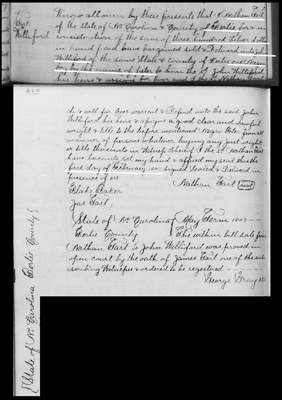 Know all men by these presents that I Nathan Tart
of the State of N. Carolina & County of Bertie for & in
consideration of the sum of three hundred Silver dollars
in hand paid have bargained sold & Delivered unto John
Williford of the same State & County of Bertie one Negro
boy by the name of Peter to him the sd John Williford
his heirs and assigns for ever and I the sd Nathan Tart
Williford
do & will for ever warrant & Defend unto the said John
Williford his heirs & assigns a good clear and lawful
wright & title to the before mentioned Negro Peter from all
manner of persons whatever laying any just right
or title thereunto in Witness whereof I the sd Nathan Tart
have hereunto set my hand & affixed my seal this the
first day of February 1807 signed Sealed & Delivered in
presence of us
Nathan Tart (seal)
Blake Baker
Jas Tart
State of N. Carolina May Term 1807
Bertie County The within bill sale from
Nathan Tart to John Williford was proved in
open court by the oath of James Tart one of the sub
scribing Witnesses & ordered to be registered
George Gray
State of No. Carolina Bertie County